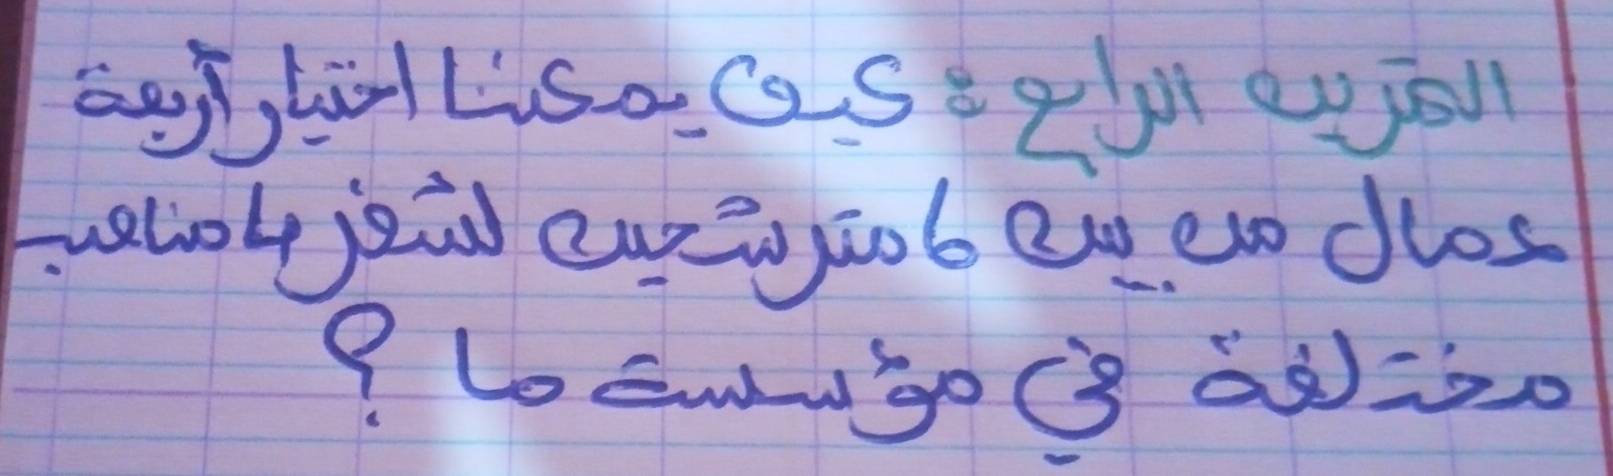 التمرين الرابع : كيف يمكننا اختيار أربعة
عمال من بين 6 مترشحين لشغر 4 مناصب
مختلفة في مؤسسة ما ؟